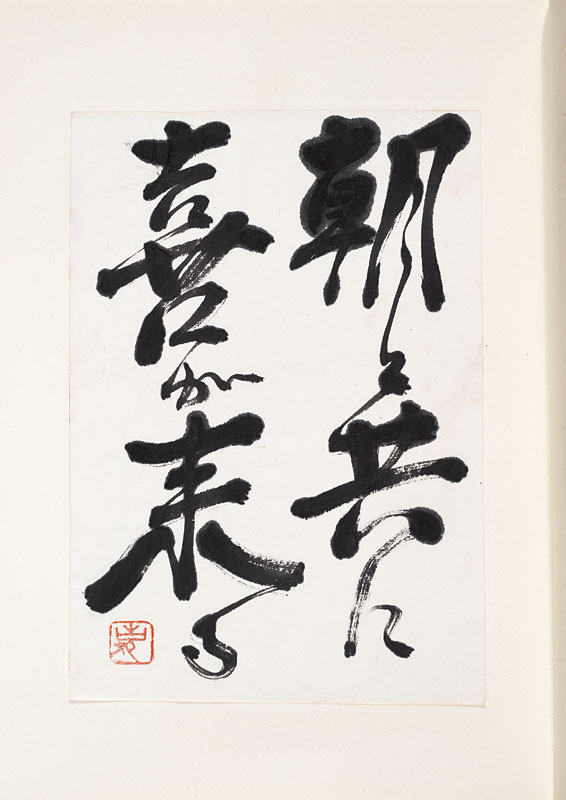 朝と共に
喜が来る